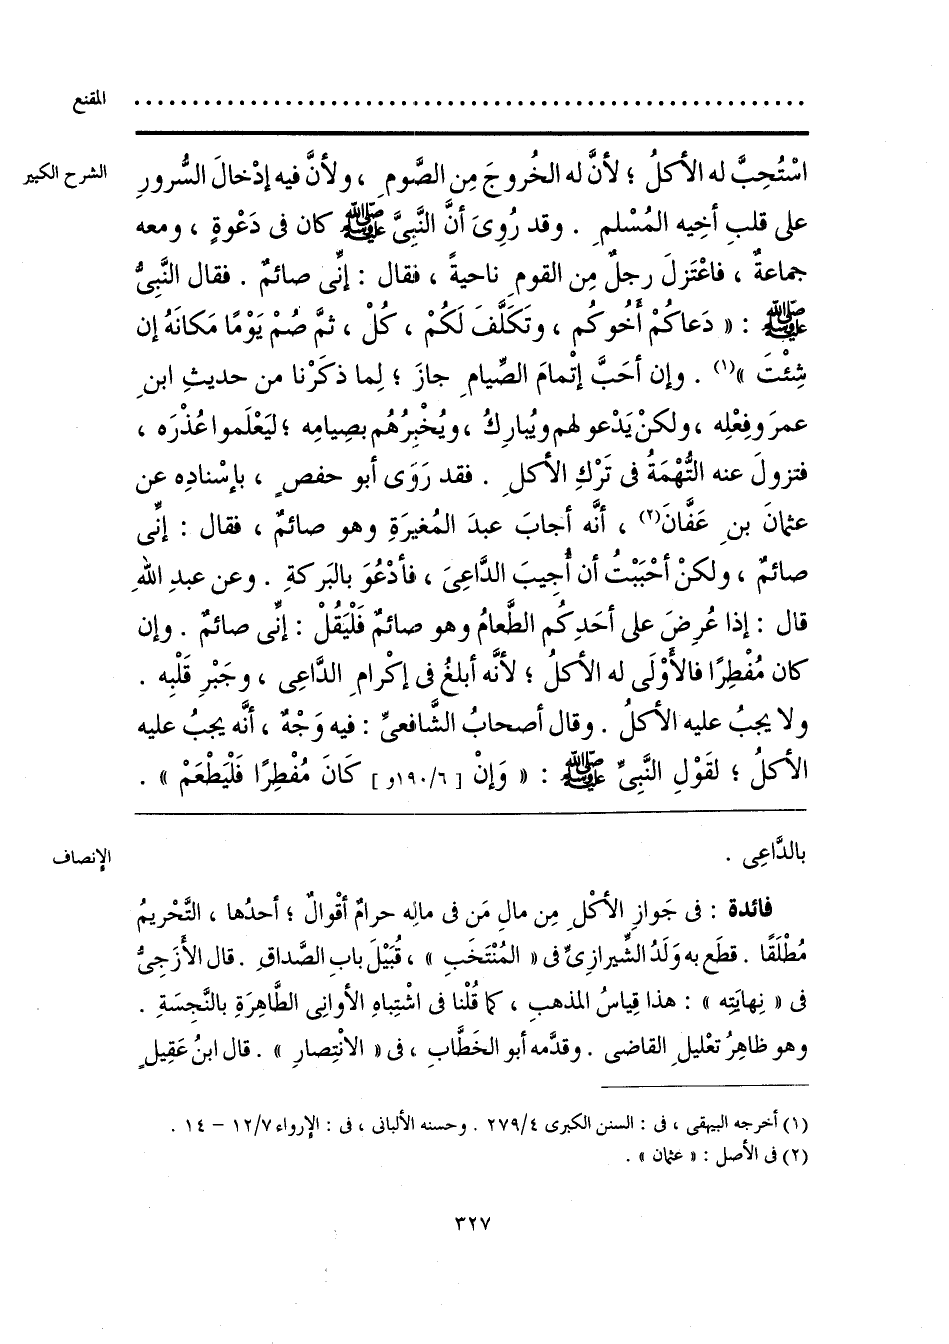 المقنع ........................................................
الشرح الكبير
اسْتُحِبَّ له الأكلُ ؛ لأنَّ له الخُروجَ مِن الصَّومِ ، ولأنَّ فيه إدْخالَ السُّرورِ
على قلبِ أخِيه المُسْلمِ . وقد رُوِىَ أنَّ النَّبِىَّ ﷺ كان فى دَعْوةٍ ، ومعه
جماعةٌ ، فاعْتَزلَ رجلٌ مِن القومِ ناحيةً ، فقال : إنِّى صائمٌ . فقال النَّبِىُّ
ﷺ : « دَعاكُمْ أَخُوكُم ، وتَكَلَّفَ لَكُمْ ، كُلْ ، ثمَّ صُمْ يَوْمًا مَكانَهُ إن
شِئْتَ »(١) . وإن أحَبَّ إتْمامَ الصِّيامِ جازَ ؛ لِما ذكَرْنا من حديثِ ابنِ
عمرَ وفِعْلِه ، ولكنْ يَدْعو لهم ويُبارِكُ ، ويُخْبِرُهُم بصِيامِه ؛ ليَعْلَموا عُذْرَه ،
فتزولَ عنه التُّهْمَةُ فى تَرْكِ الأكلِ . فقد رَوَى أبو حفصٍ ، بإسْنادِه عن
عثمانَ بنِ عَفَّانَ(٢) ، أنَّه أجابَ عبدَ المُغيرَةِ وهو صائمٌ ، فقال : إنِّى
صائمٌ ، ولكنْ أحْبَبْتُ أن أُجِيبَ الدَّاعِىَ ، فأدْعُوَ بالبَركةِ . وعن عبدِ اللهِ
قال : إذا عُرِضَ على أحَدِكُم الطَّعامُ وهو صائمٌ فَلْيَقُلْ : إنِّى صائمٌ . وإن
كان مُفْطِرًا فالأَوْلَى له الأكلُ ؛ لأنَّه أبلغُ فى إكْرامِ الدَّاعِى ، وجَبْرِ قَلْبِه .
ولا يجبُ عليه الأكلُ . وقال أصحابُ الشَّافعىِّ : فيه وَجْهٌ ، أنَّه يجبُ عليه
الأكلُ ؛ لقَوْلِ النَّبىِّ ﷺ : « وَإنْ [ ١٩٠/٦و ] كَانَ مُفْطِرًا فَلْيَطْعَمْ » .
الإنصاف
بالدَّاعِى .
فائدة : فى جَوازِ الأكْلِ مِن مالِ مَن فى مالِه حرامٌ أقْوالٌ ؛ أحدُها ، التَّحْريمُ
مُطْلَقًا . قطَع به وَلَدُ الشِّيرازِىِّ فى « المُنْتَخَبِ » ، قُبَيْلَ بابِ الصَّداقِ . قال الأَزَجِىُّ
فى « نِهايَتِه » : هذا قِياسُ المذهبِ ، كما قُلْنا فى اشْتِباهِ الأوانِى الطَّاهِرَةِ بالنَّجِسَةِ .
وهو ظاهِرُ تعْليلِ القاضى . وقدَّمه أبو الخَطَّابِ ، فى « الانْتِصارِ » . قال ابنُ عَقِيلٍ
(١) أخرجه البيهقى ، فى : السنن الكبرى ٢٧٩/٤ . وحسنه الألبانى ، فى : الإرواء ١٢/٧ – ١٤ .
(٢) فى الأصل : « عثمان » .
٣٢٧